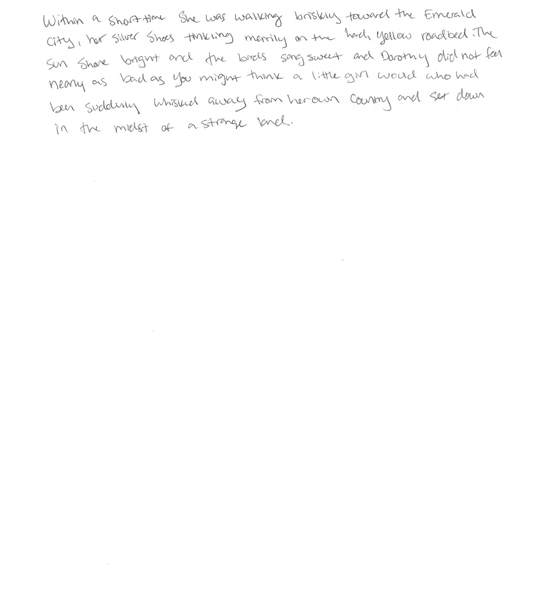 Within a short time she was walking briskly toward the Emerald
City, her Silver Shoes tinkling merrily on the hard, yellow roadbed. The
sun shone bright and the birds sang sweet and Dorothy did not feel
nearly as bad as you might think a little girl would who had
been suddenly whisked away from her own country and set down
in the midst of a strange land.